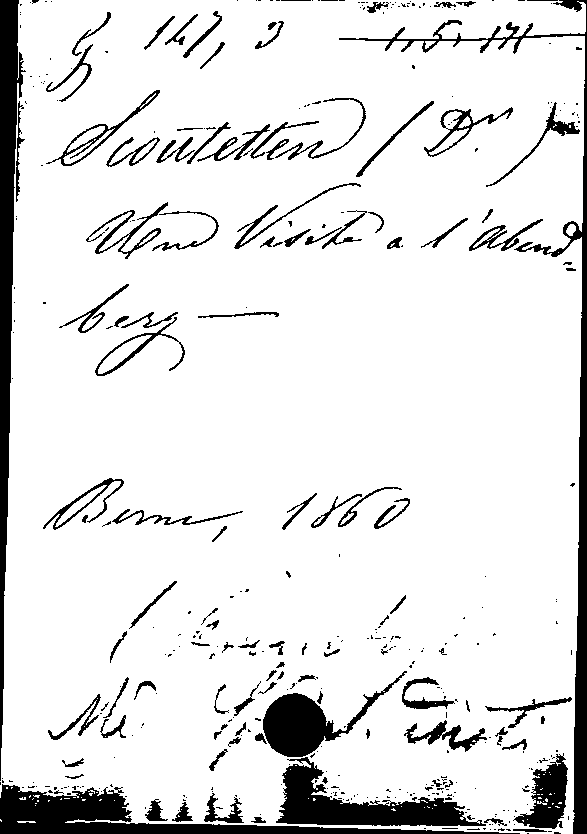 G. 147, 3 1.5.171
Scoutetten (Dr)
Une Visite a l'Abend=
berg —
Berne, 1860